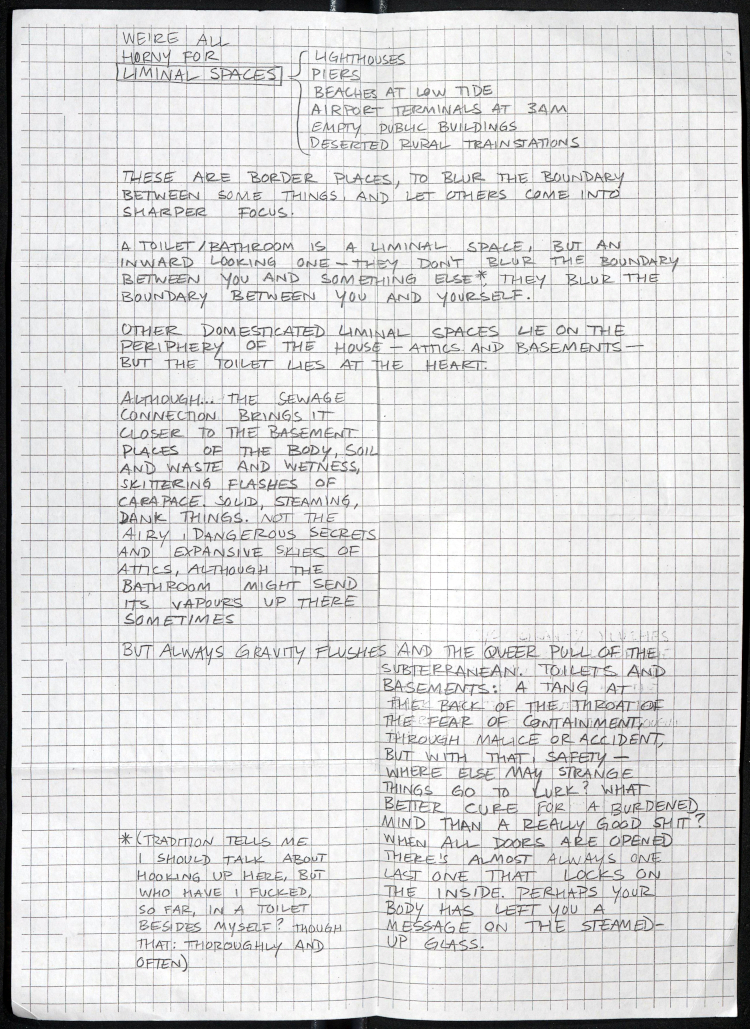 WE'RE ALL
HORNY FOR
LIMINAL SPACES
LIGHTHOUSES
PIERS
BEACHES AT LOW TIDE
AIRPORT TERMINALS AT 3AM
EMPTY PUBLIC BUILDINGS
DESERTED RURAL TRAINSTATIONS
THESE ARE BORDER PLACES, TO BLUR THE BOUNDARY
BETWEEN SOME THINGS, AND LET OTHERS COME INTO
SHARPER FOCUS.
A TOILET/BATHROOM IS A LIMINAL SPACE, BUT AN
INWARD LOOKING ONE – THEY DON'T BLUR THE BOUNDARY
BETWEEN YOU AND SOMETHING ELSE*, THEY BLUR THE
BOUNDARY BETWEEN YOU AND YOURSELF.
OTHER DOMESTICATED LIMINAL SPACES LIE ON THE
PERIPHERY OF THE HOUSE – ATTICS AND BASEMENTS –
BUT THE TOILET LIES AT THE HEART.
ALTHOUGH... THE SEWAGE
CONNECTION BRINGS IT
CLOSER TO THE BASEMENT
PLACES OF THE BODY, SOIL
AND WASTE AND WETNESS,
SKITTERING FLASHES OF
CARAPACE. SOLID, STEAMING,
DANK THINGS. NOT THE
AIRY, DANGEROUS SECRETS
AND EXPANSIVE SKIES OF
ATTICS, ALTHOUGH THE
BATHROOM MIGHT SEND
ITS VAPOURS UP THERE
SOMETIMES
BUT ALWAYS GRAVITY FLUSHES AND THE QUEER PULL OF THE
SUBTERRANEAN. TOILETS AND
BASEMENTS: A TANG AT
THE BACK OF THE THROAT OF
THE FEAR OF CONTAINMENT,
THROUGH MALICE OR ACCIDENT,
BUT WITH THAT, SAFETY –
WHERE ELSE MAY STRANGE
THINGS GO TO LURK? WHAT
BETTER CURE FOR A BURDENED
MIND THAN A REALLY GOOD SHIT?
WHEN ALL DOORS ARE OPENED
THERE'S ALMOST ALWAYS ONE
LAST ONE THAT LOCKS ON
THE INSIDE. PERHAPS YOUR
BODY HAS LEFT YOU A
MESSAGE ON THE STEAMED-
UP GLASS.
*(TRADITION TELLS ME
I SHOULD TALK ABOUT
HOOKING UP HERE, BUT
WHO HAVE I FUCKED,
SO FAR, IN A TOILET
BESIDES MYSELF? THOUGH
THAT: THOROUGHLY AND
OFTEN)